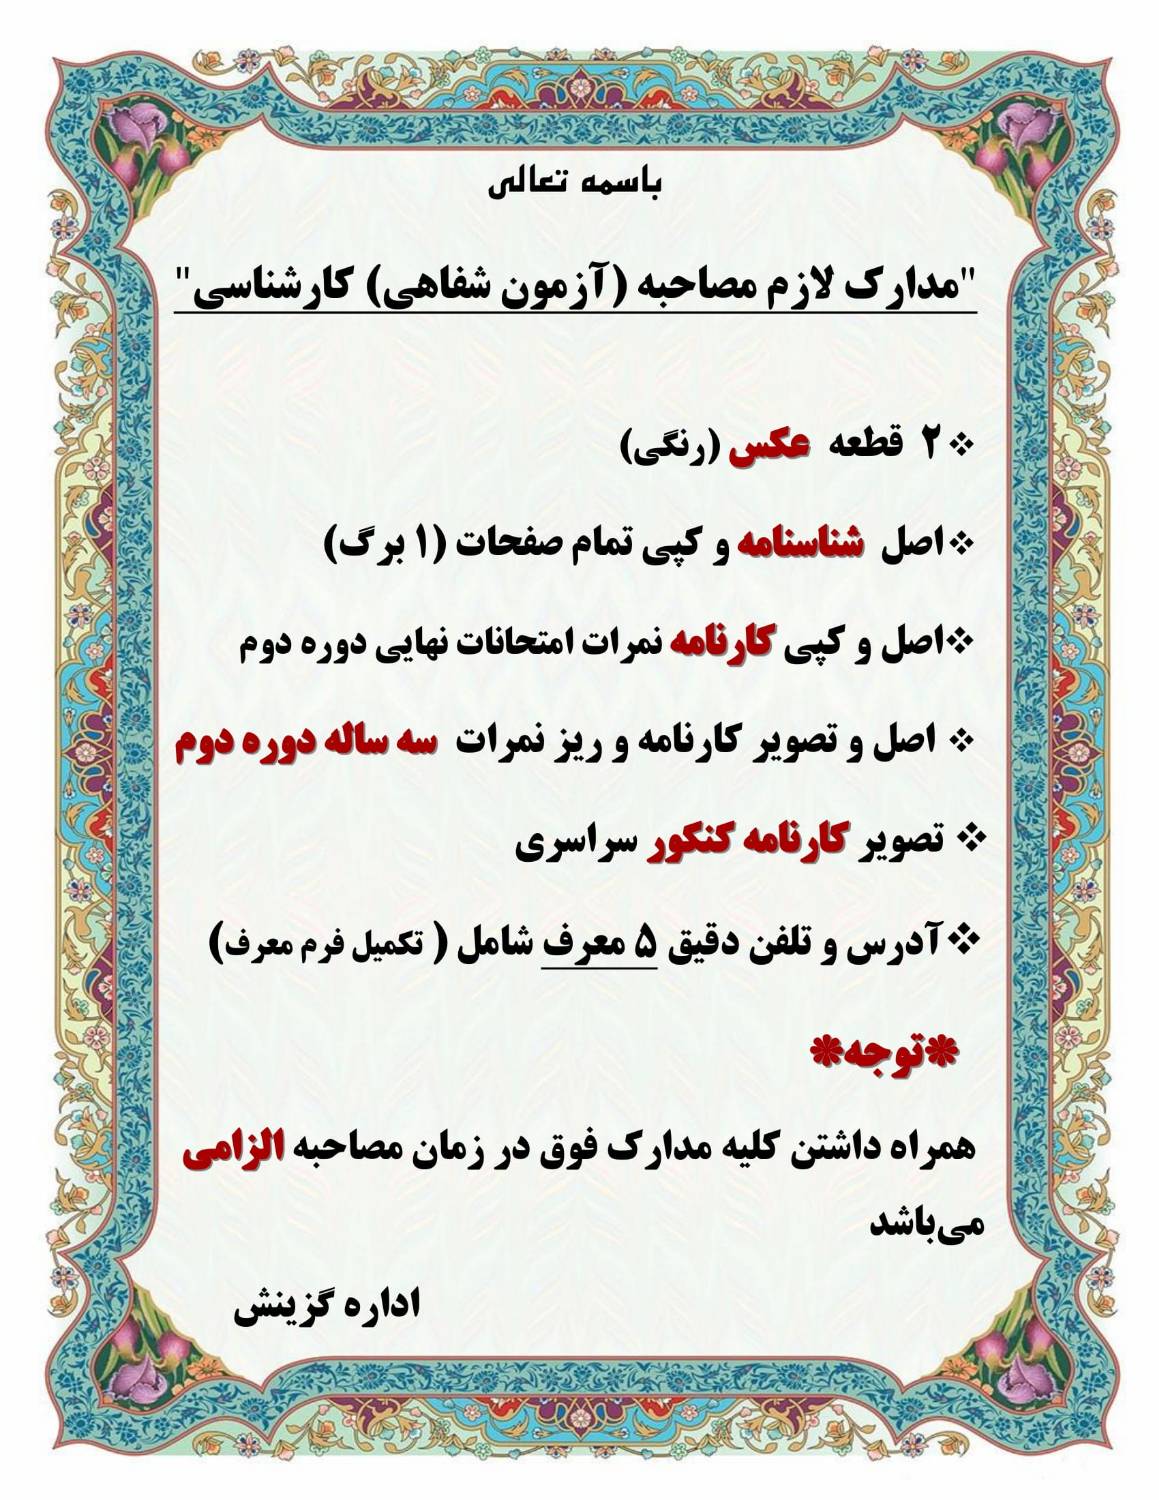 باسمه تعالی
"مدارک لازم مصاحبه (آزمون شفاهی) کارشناسی"
❖ ۲ قطعه عکس (رنگی)
❖ اصل شناسنامه و کپی تمام صفحات (۱ برگ)
❖ اصل و کپی کارنامه نمرات امتحانات نهایی دوره دوم
❖ اصل و تصویر کارنامه و ریز نمرات سه ساله دوره دوم
❖ تصویر کارنامه کنکور سراسری
❖ آدرس و تلفن دقیق ۵ معرف شامل ( تکمیل فرم معرف)
*توجه*
همراه داشتن کلیه مدارک فوق در زمان مصاحبه الزامی
می‌باشد
اداره گزینش